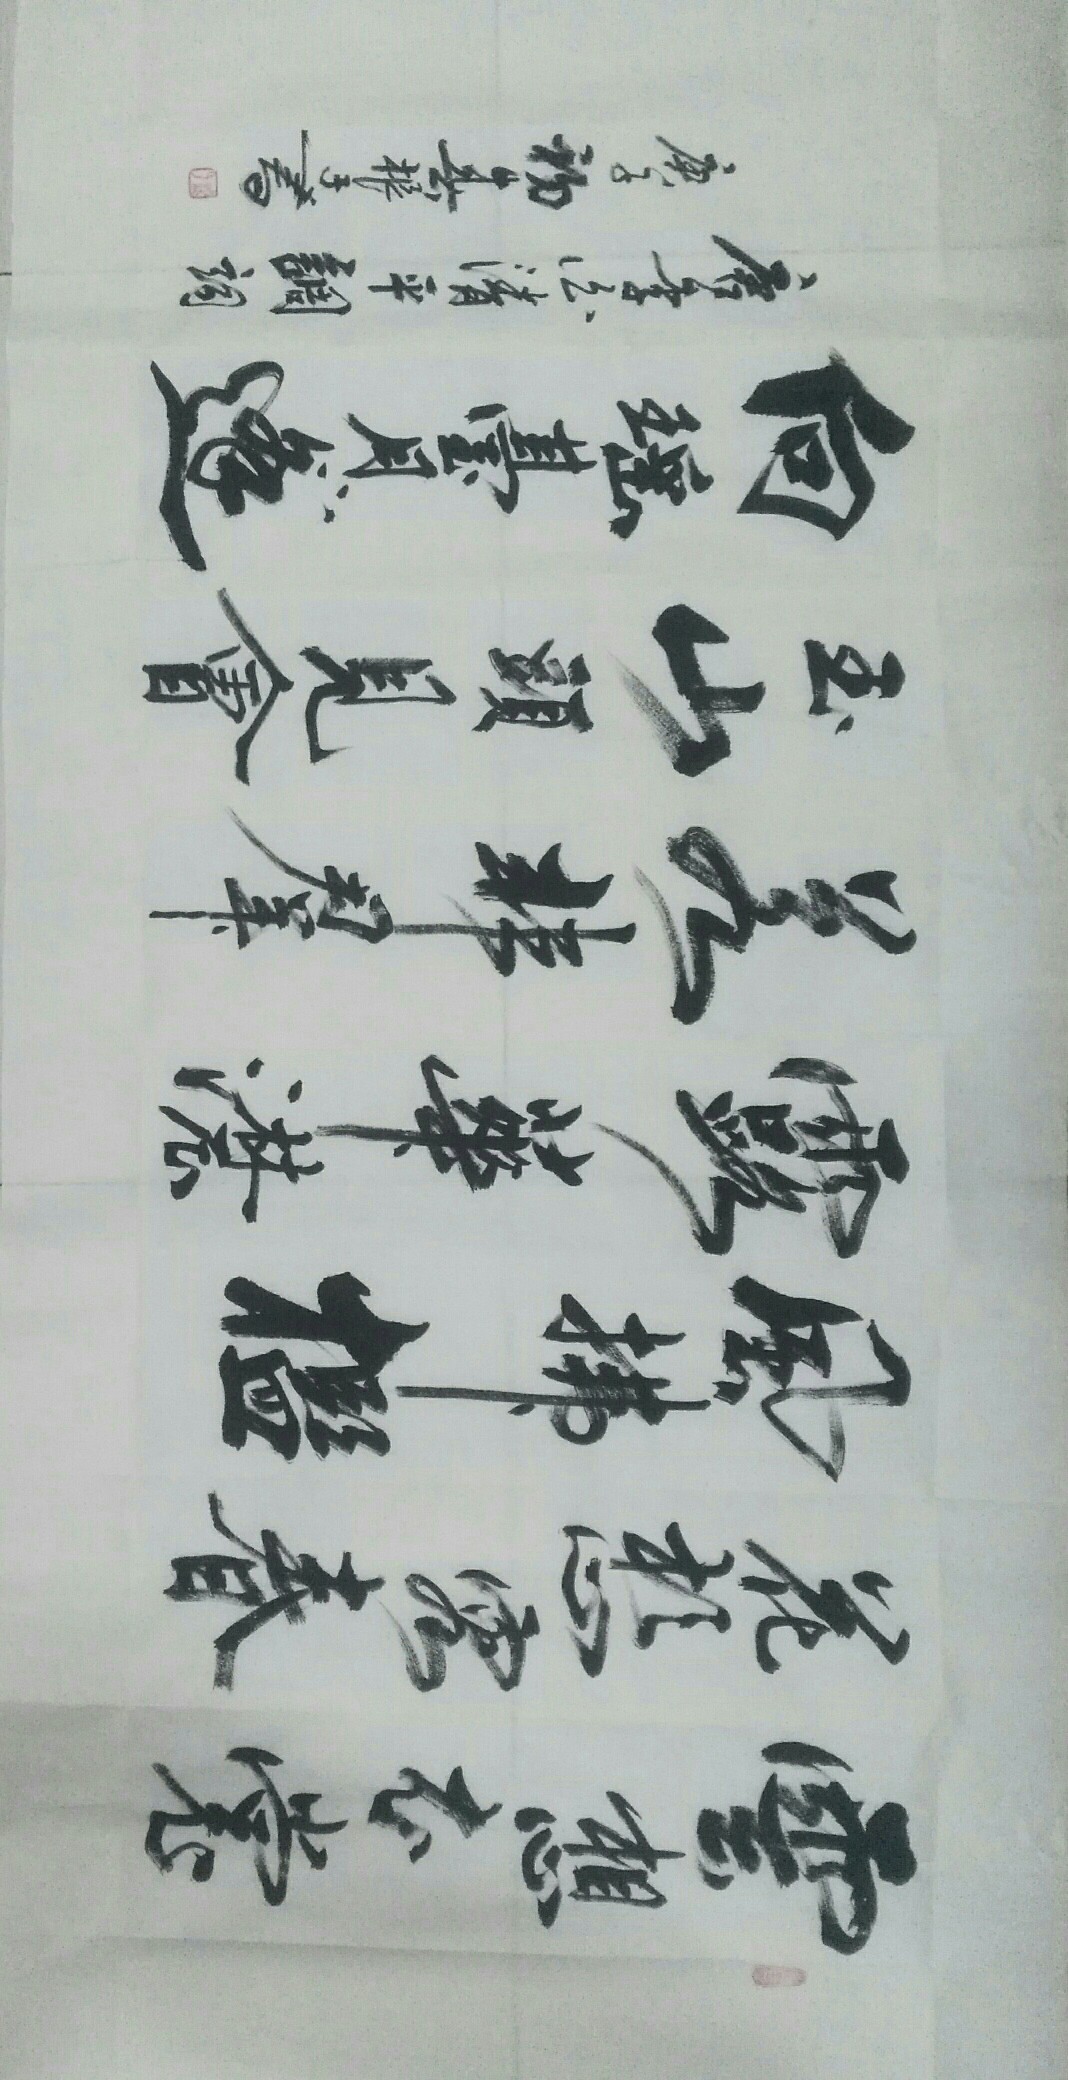 雲想衣裳
花想容春
風拂檻
露華濃
若非群
玉山頭見會
向瑤臺月下逢
唐李白清平調詞
庚子初春振書